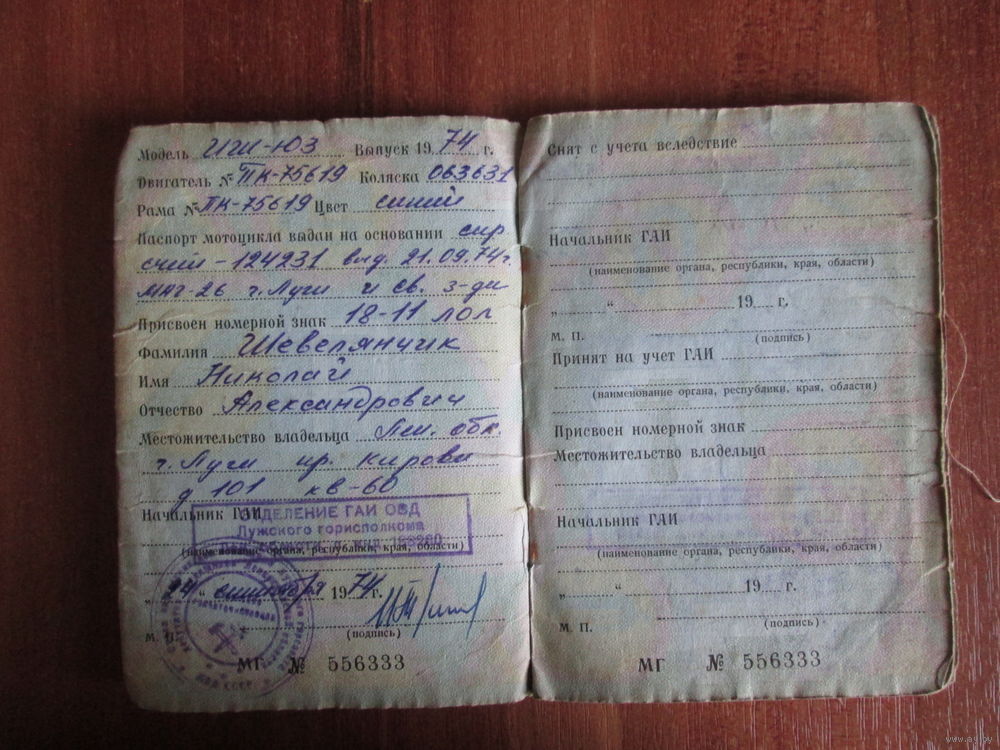 Модель ИЖ-ЮЗ Выпуск 1974 г.
Двигатель № ПК-75619 Коляска 063631
Рама № ПК-75619 Цвет синий
Паспорт мотоцикла выдан на основании спр
счет-124231 выд. 21.09.74г.
маг-26 г. Луги и св. з-да
Присвоен номерной знак 18-11 лол
Фамилия Шевелянчик
Имя Николай
Отчество Александрович
Местожительство владельца Лен. обл.
г. Луги пр. Кирова
д 101 кв-60
Начальник ГАИ
ОТДЕЛЕНИЕ ГАИ ОВД
Лужского горисполкома
(наименование органа, республики, края, области)
„24" сентября 1974 г.
М. П. (подпись)
МГ № 556333
Снят с учета вследствие
Начальник ГАИ
(наименование органа, республики, края, области)
„ " 19 г.
М. П. (подпись)
Принят на учет ГАИ
(наименование органа, республики, края, области)
Присвоен номерной знак
Местожительство владельца
Начальник ГАИ
(наименование органа, республики, края, области)
„ " 19 г.
М. П. (подпись)
МГ № 556333
www.ay.by